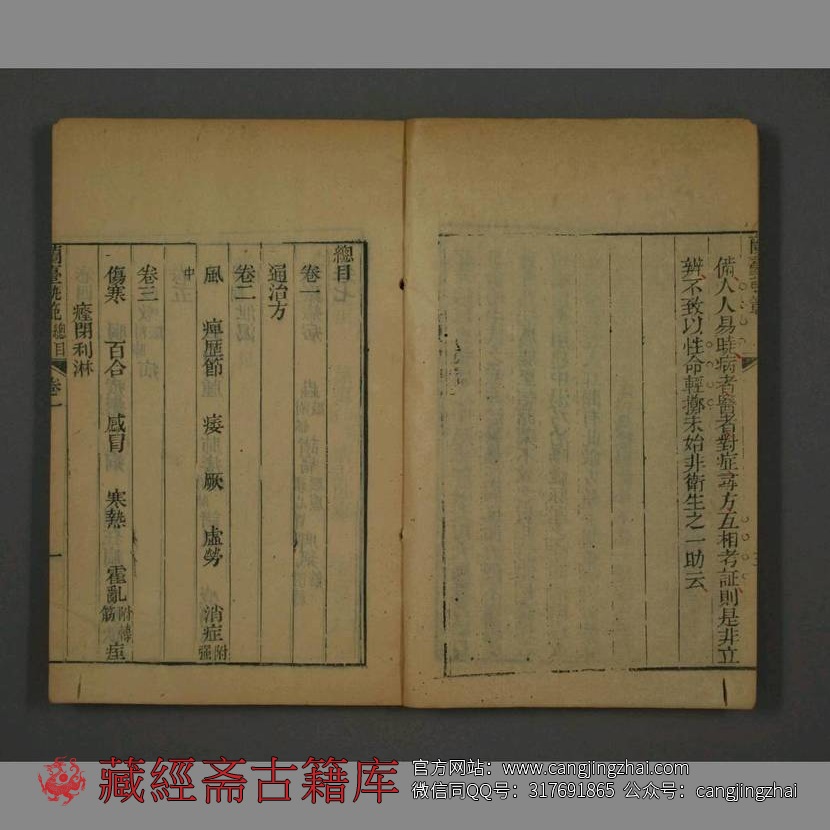 備人人易曉病者醫者對症尋方互相考証則是非立
辨不致以性命輕擲未始非衛生之一助云
總目
卷一
通治方
卷二
風 痺歷節 痿 厥 虛勞 消症附強
中
卷三
傷寒 百合 感冒 寒熱 霍亂附轉筋 痙
痙閉利淋
蘭臺軌範 總目 卷一 一
藏經斋古籍库
官方网站：www.cangjingzhai.com
微信同QQ号：317691865 公众号：cangjingzhai